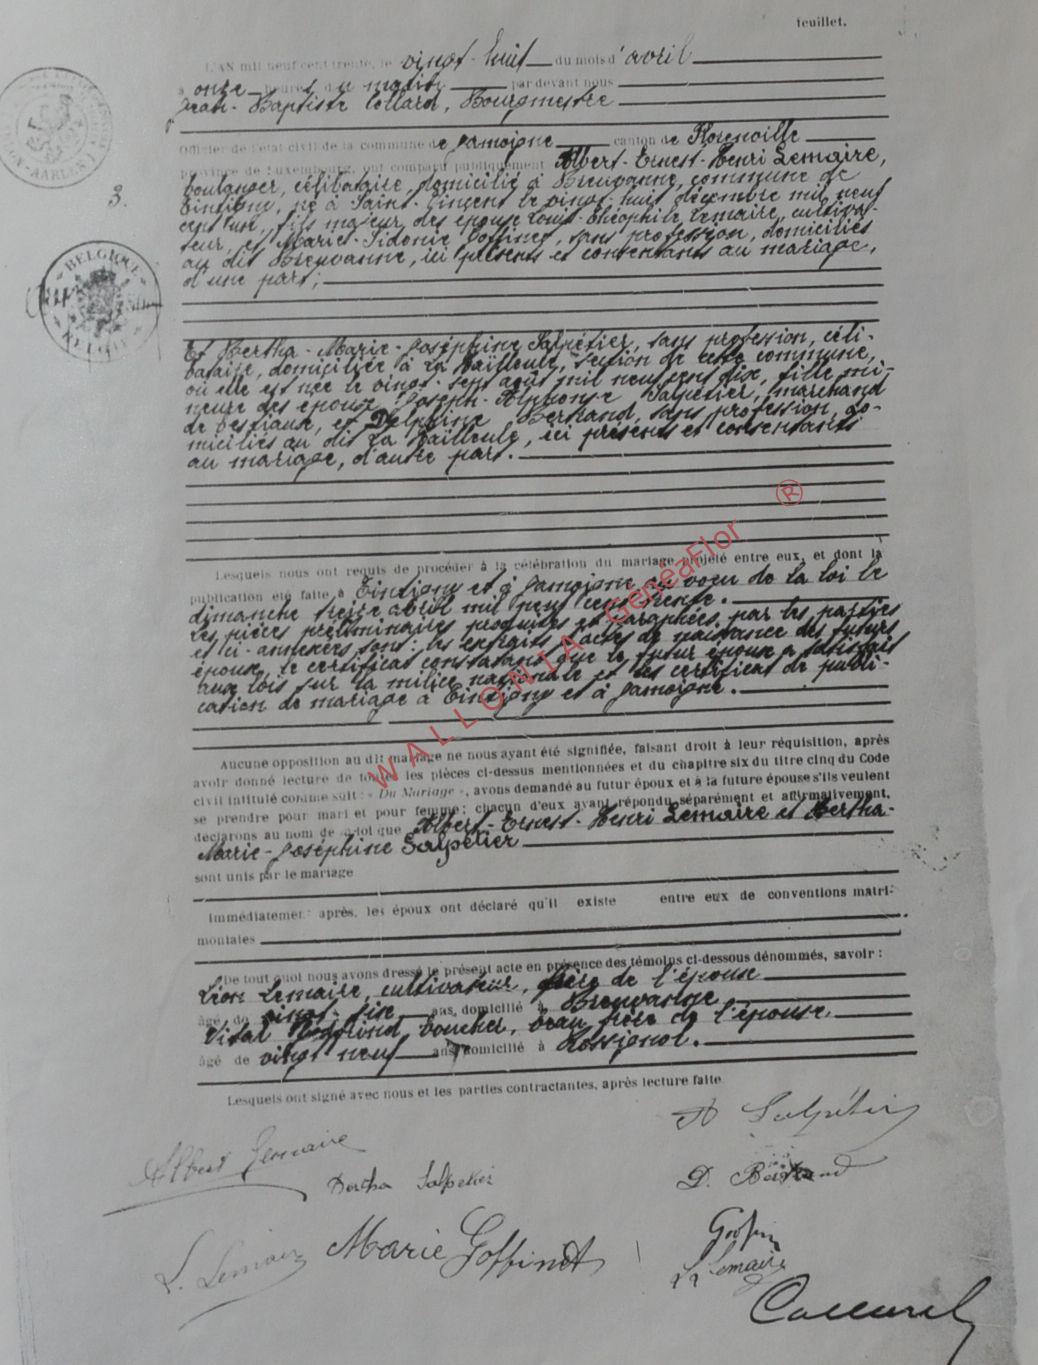 feuillet.
L'AN mil neuf cent trente, le vingt-huit du mois d'avril
à onze heures du matin par devant nous
Jean-Baptiste Collard, Bourgmestre
Officier de l'état civil de la commune de Jamoigne canton de Florenville
province de Luxembourg, ont comparu publiquement Albert-Ernest-Henri Lemaire,
3.
boulanger, célibataire, domicilié à Breuvanne, commune de
Tintigny, né à Saint-Vincent le vingt-huit décembre mil neuf
cent un, fils majeur des époux Louis-Théophile Lemaire, cultiva-
teur, et Marie-Sidonie Goffinet, sans profession, domiciliés
au dit Breuvanne, ici présents et consentants au mariage,
d'une part;
BELGIQUE
Et Bertha-Marie-Joséphine Salpétier, sans profession, céli-
bataire, domiciliée à La Hailleule, section de cette commune,
où elle est née le vingt-sept août mil neuf cent dix, fille mi-
neure des époux Joseph-Alphonse Salpétier, marchand
de bestiaux, et Delphine Bertrand, sans profession, do-
miciliés au dit La Hailleule, ici présents et consentants
au mariage, d'autre part.
Lesquels nous ont requis de procéder à la célébration du mariage projeté entre eux, et dont la
publication été faite à Tintigny et à Jamoigne au voeu de la loi le
dimanche treize avril mil neuf cent trente.
Les pièces préliminaires produites et paraphées par les parties
et ci-annexées sont: les extraits d'actes de naissance des futurs
époux, le certificat constatant que le futur époux a satisfait
aux lois sur la milice nationale et les certificat de publi-
cation de mariage à Tintigny et à Jamoigne.
WALLONIA GeneaFlor ®
Aucune opposition au dit mariage ne nous ayant été signifiée, faisant droit à leur réquisition, après
avoir donné lecture de toutes les pièces ci-dessus mentionnées et du chapitre six du titre cinq du Code
civil intitulé comme suit : « Du Mariage », avons demandé au futur époux et à la future épouse s'ils veulent
se prendre pour mari et pour femme; chacun d'eux ayant répondu séparément et affirmativement,
déclarons au nom de la loi que Albert-Ernest-Henri Lemaire et Bertha-
Marie-Joséphine Salpétier
sont unis par le mariage
Immédiatement après, les époux ont déclaré qu'il existe entre eux de conventions matri-
moniales
De tout quoi nous avons dressé le présent acte en présence des témoins ci-dessous dénommés, savoir :
Léon Lemaire, cultivateur, frère de l'épouse
âgé de vingt-six ans, domicilié à Breuvanne
Vital boucher, beau frère de l'épouse,
âgé de vingt neuf ans, domicilié à Rossignol.
Lesquels ont signé avec nous et les parties contractantes, après lecture faite
A Salpétier
Albert Lemaire
Bertha Salpétier
D. Bertrand
L. Lemaire
Marie Goffinet
Lemaire